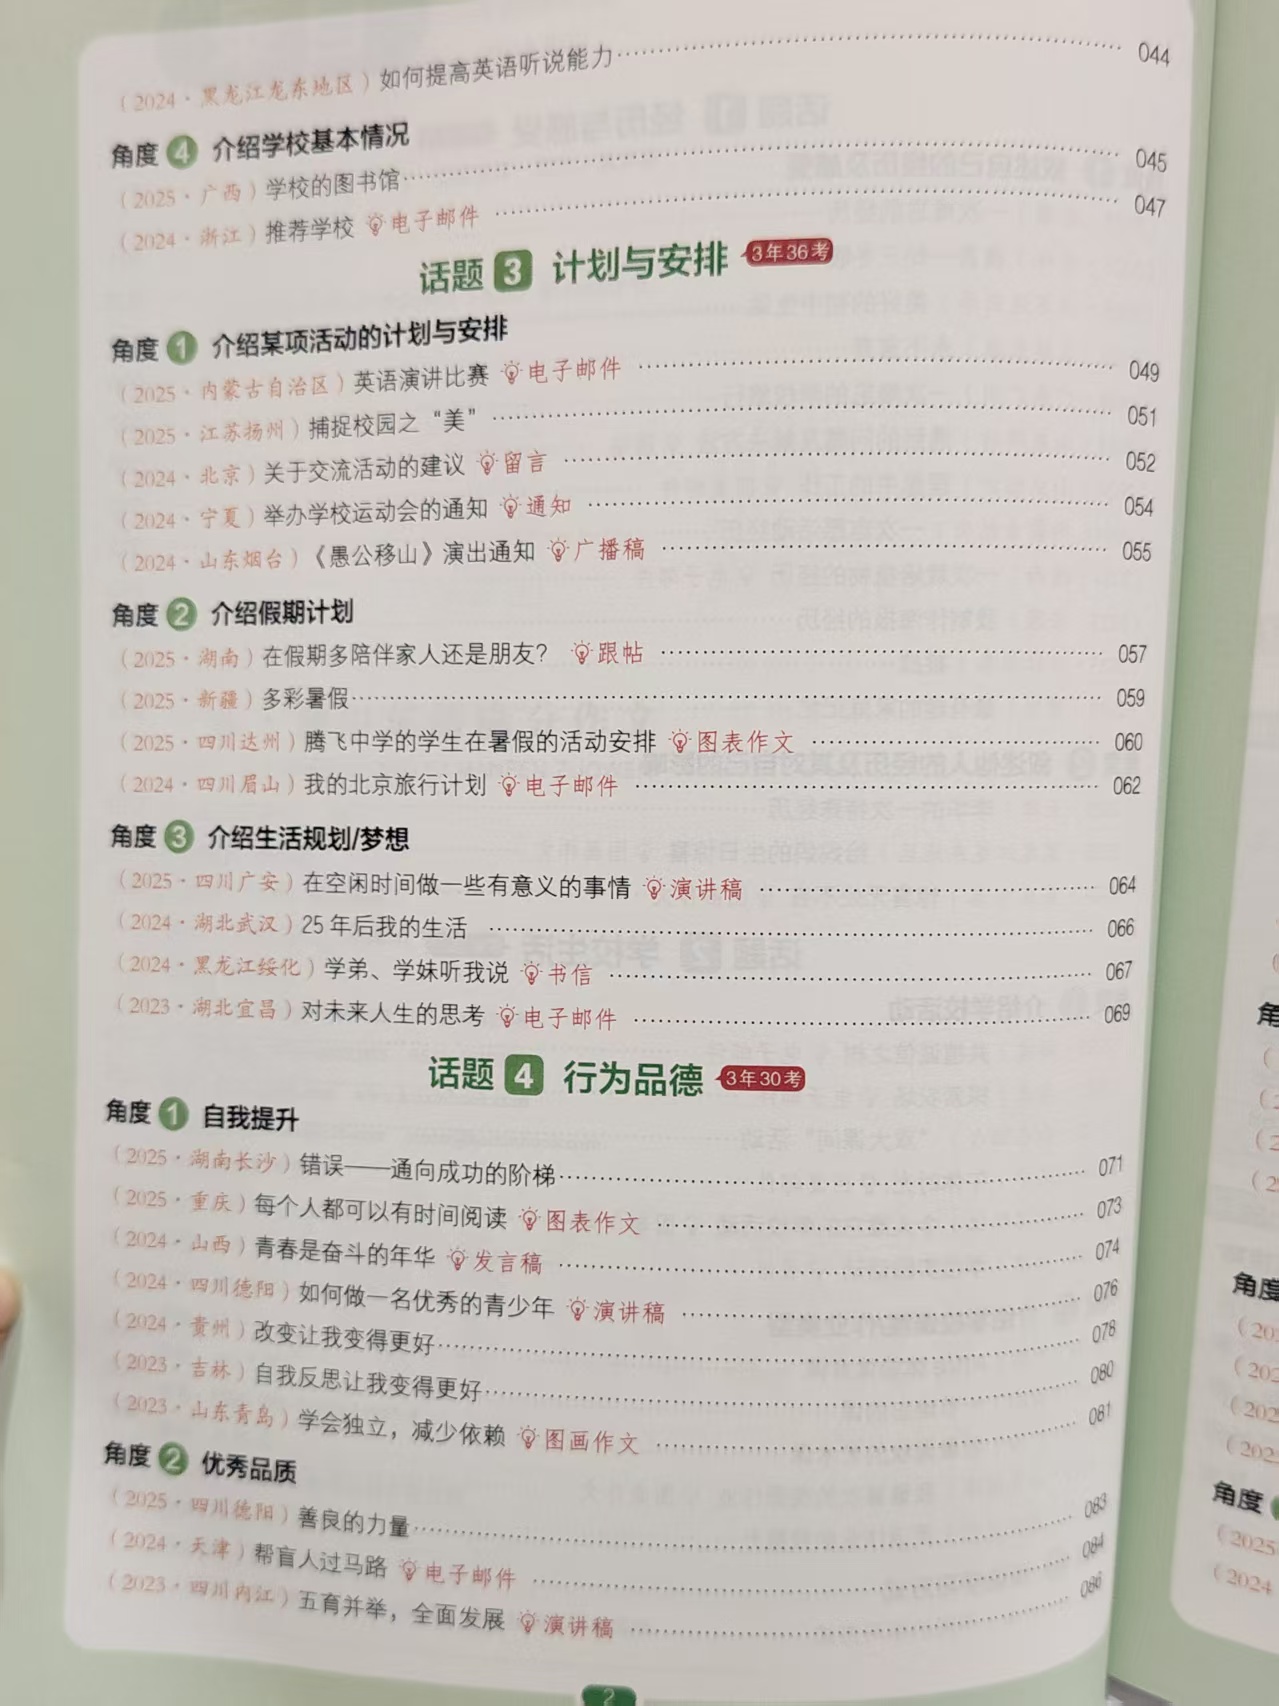 （2024·黑龙江龙东地区）如何提高英语听说能力 044
角度4 介绍学校基本情况
（2025·广西）学校的图书馆 045
（2024·浙江）推荐学校 电子邮件 047
话题3 计划与安排 3年36考
角度1 介绍某项活动的计划与安排
（2025·内蒙古自治区）英语演讲比赛 电子邮件 049
（2025·江苏扬州）捕捉校园之“美” 051
（2024·北京）关于交流活动的建议 留言 052
（2024·宁夏）举办学校运动会的通知 通知 054
（2024·山东烟台）《愚公移山》演出通知 广播稿 055
角度2 介绍假期计划
（2025·湖南）在假期多陪伴家人还是朋友？ 跟帖 057
（2025·新疆）多彩暑假 059
（2025·四川达州）腾飞中学的学生在暑假的活动安排 图表作文 060
（2024·四川眉山）我的北京旅行计划 电子邮件 062
角度3 介绍生活规划/梦想
（2025·四川广安）在空闲时间做一些有意义的事情 演讲稿 064
（2024·湖北武汉）25年后我的生活 066
（2024·黑龙江绥化）学弟、学妹听我说 书信 067
（2023·湖北宜昌）对未来人生的思考 电子邮件 069
话题4 行为品德 3年30考
角度1 自我提升
（2025·湖南长沙）错误——通向成功的阶梯 071
（2025·重庆）每个人都可以有时间阅读 图表作文 073
（2024·山西）青春是奋斗的年华 发言稿 074
（2024·四川德阳）如何做一名优秀的青少年 演讲稿 076
（2024·贵州）改变让我变得更好 078
（2023·吉林）自我反思让我变得更好 080
（2023·山东青岛）学会独立，减少依赖 图画作文 081
角度2 优秀品质
（2025·四川德阳）善良的力量 083
（2024·天津）帮盲人过马路 电子邮件 084
（2023·四川内江）五育并举，全面发展 演讲稿 086
2
角度
角度
（2025
（2024